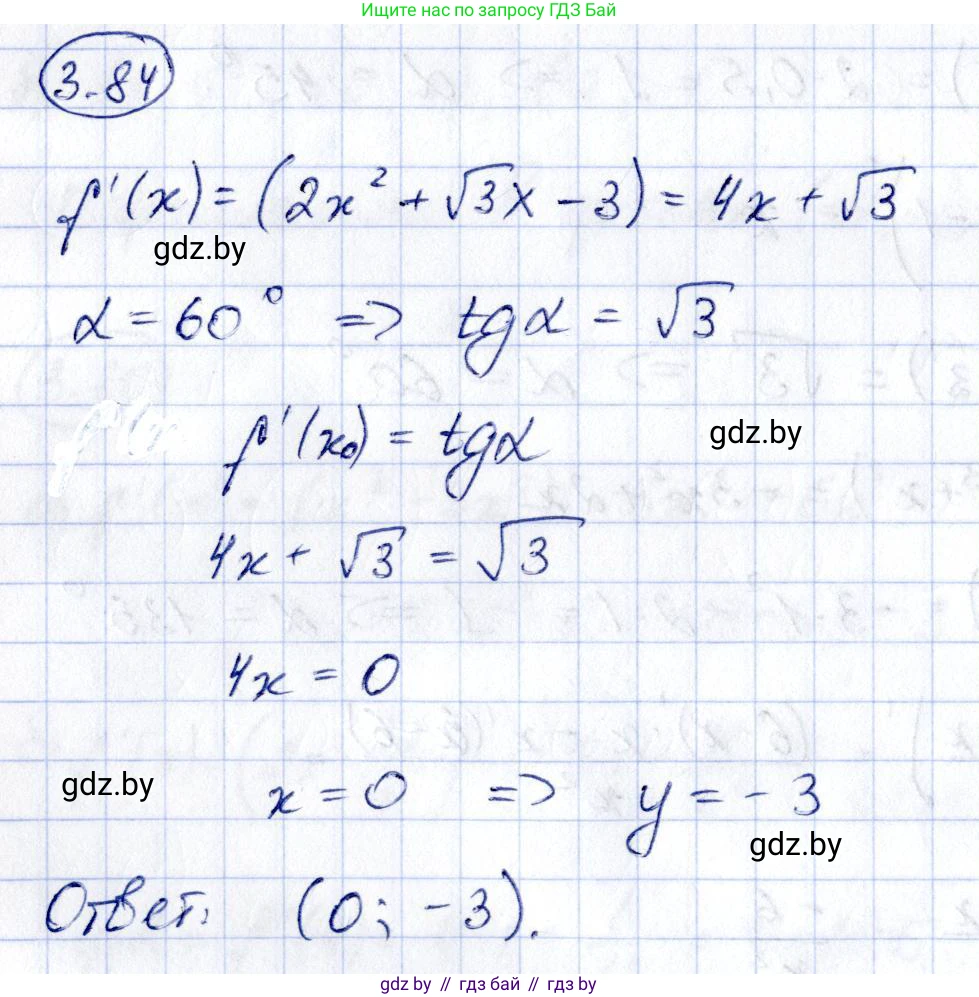 Ищите нас по запросу ГДЗ Бай
3.84
f'(x) = (2x² + √3x - 3) = 4x + √3
gdz.by
α = 60° => tgα = √3
f'(x₀) = tgα
gdz.by
4x + √3 = √3
4x = 0
gdz.by
x = 0 => y = -3
gdz.by
Ответ: (0; -3).
gdz.by // гдз бай // gdz by